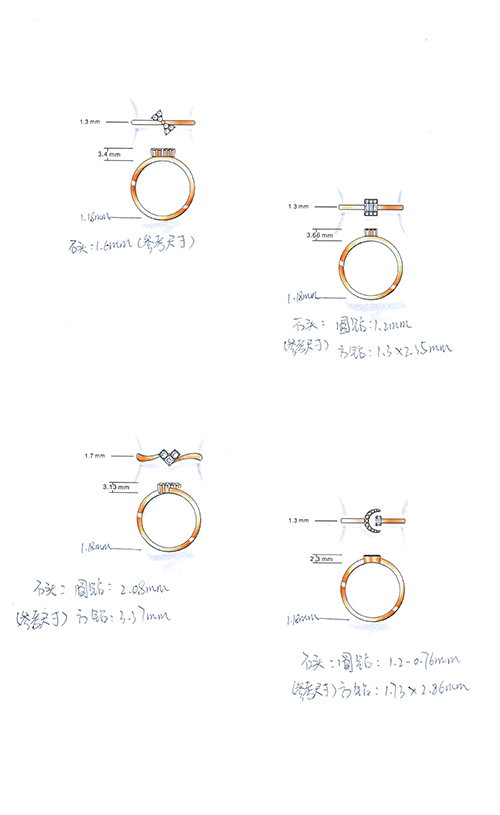 1.3 mm
3.4 mm
1.18mm
石头:1.6mm(参考尺寸)
1.3 mm
3.66 mm
1.18mm
石头: 圆钻:1.2mm
(参考尺寸) 方钻:1.3×2.35mm
1.7 mm
3.13 mm
1.18mm
石头: 圆钻: 2.08mm
(参考尺寸) 方钻:3.37mm
1.3 mm
2.3 mm
1.18mm
石头:圆钻: 1.2-0.76mm
(参考尺寸)方钻:1.73×2.86mm